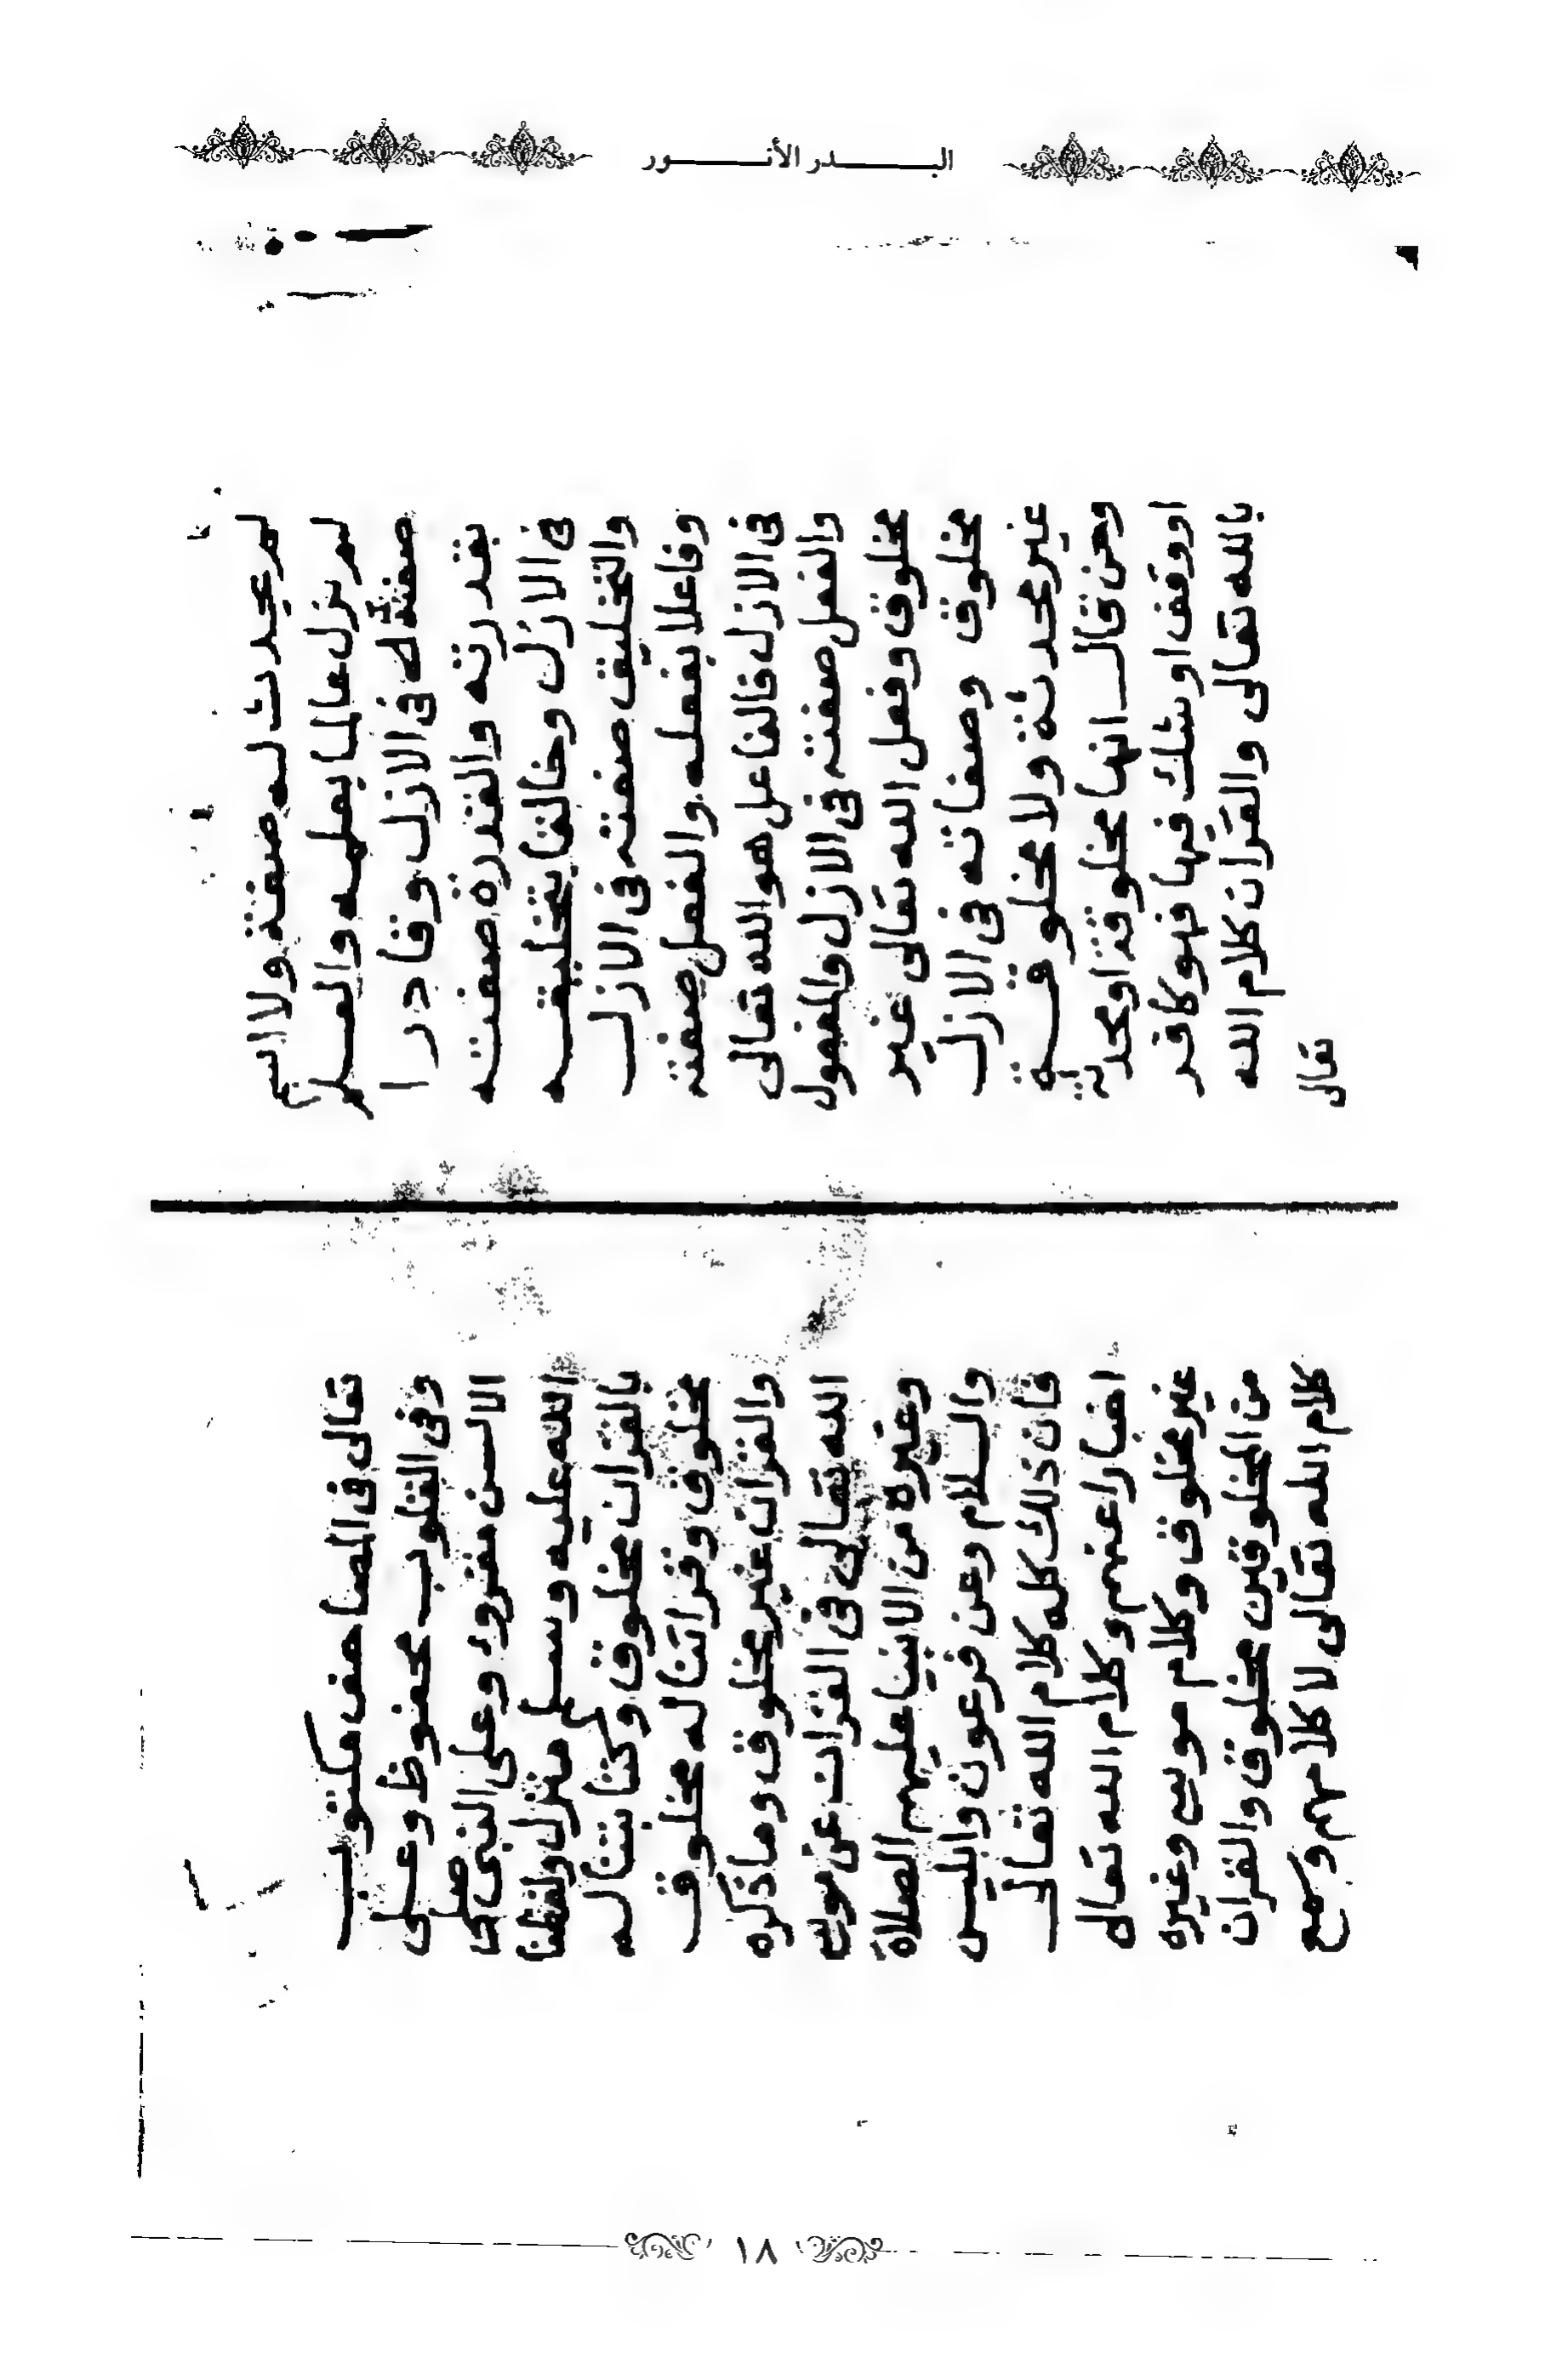 البـــدر الأنـــور
لم يحدث له صفة ولا اسم
لم يزل عالما بعلمه والعلم
صفته له فى الازل وقادرا
بقدرته والقدرة صفته
فى الازل وخالقا بتخليقه
والتخليق صفته فى الازل
وفاعلا بفعله والفعل صفته
فى الازل فالفاعل هو الله تعالى
والفعل صفته فى الازل والمفعول
مخلوق وفعل الله تعالى غير
مخلوق وصفاته فى الازل
غير محدثة ولا مخلوقة
ومن قال انها مخلوقة او محدثة
او وقف او شك فيها فهو كافر
بالله تعالى والقران كلام الله
تعالى
تعالى فى المصاحف مكتوب
وفى القلوب محفوظ وعلى
الالسن مقروء وعلى النبى صلى
الله عليه وسلم منزل ولفظنا
بالقران مخلوق وكتابتنا له
مخلوق وقراتنا له مخلوق
والقران غير مخلوق وما ذكره
الله تعالى فى القران عن موسى
وغيره من الانبيا عليهم الصلاة
والسلام وعن فرعون وابليس
فان ذلك كله كلام الله تعالى
اخبارا عنهم وكلام الله تعالى
غير مخلوق وكلام موسى وغيره
من المخلوقين مخلوق والقران
كلام الله تعالى لا كلامهم وسمع
١٨